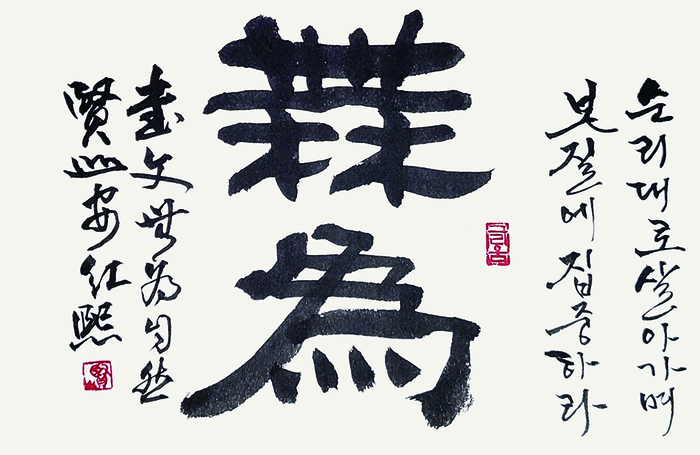 순리대로살아가며
본질에집중하라
無為
文無為自然
賢安紅熙